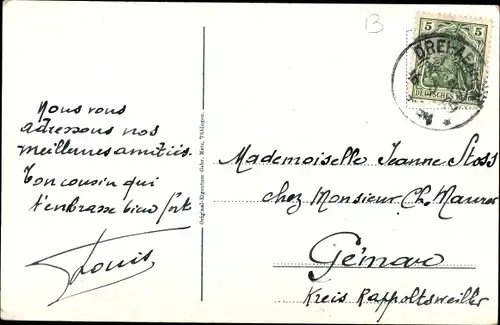 B
5 5
DEUTSCHES REICH
Nous vous
adressons nos
meilleures amitiés.
Ton cousin qui
t'embrasse bien fort
Louis
Original-Eigentum Gebr. Metz, Tübingen.
Mademoiselle Jeanne Stoss
chez Monsieur Ch. Maurer
Gémar
Kreis Rappoltsweiler